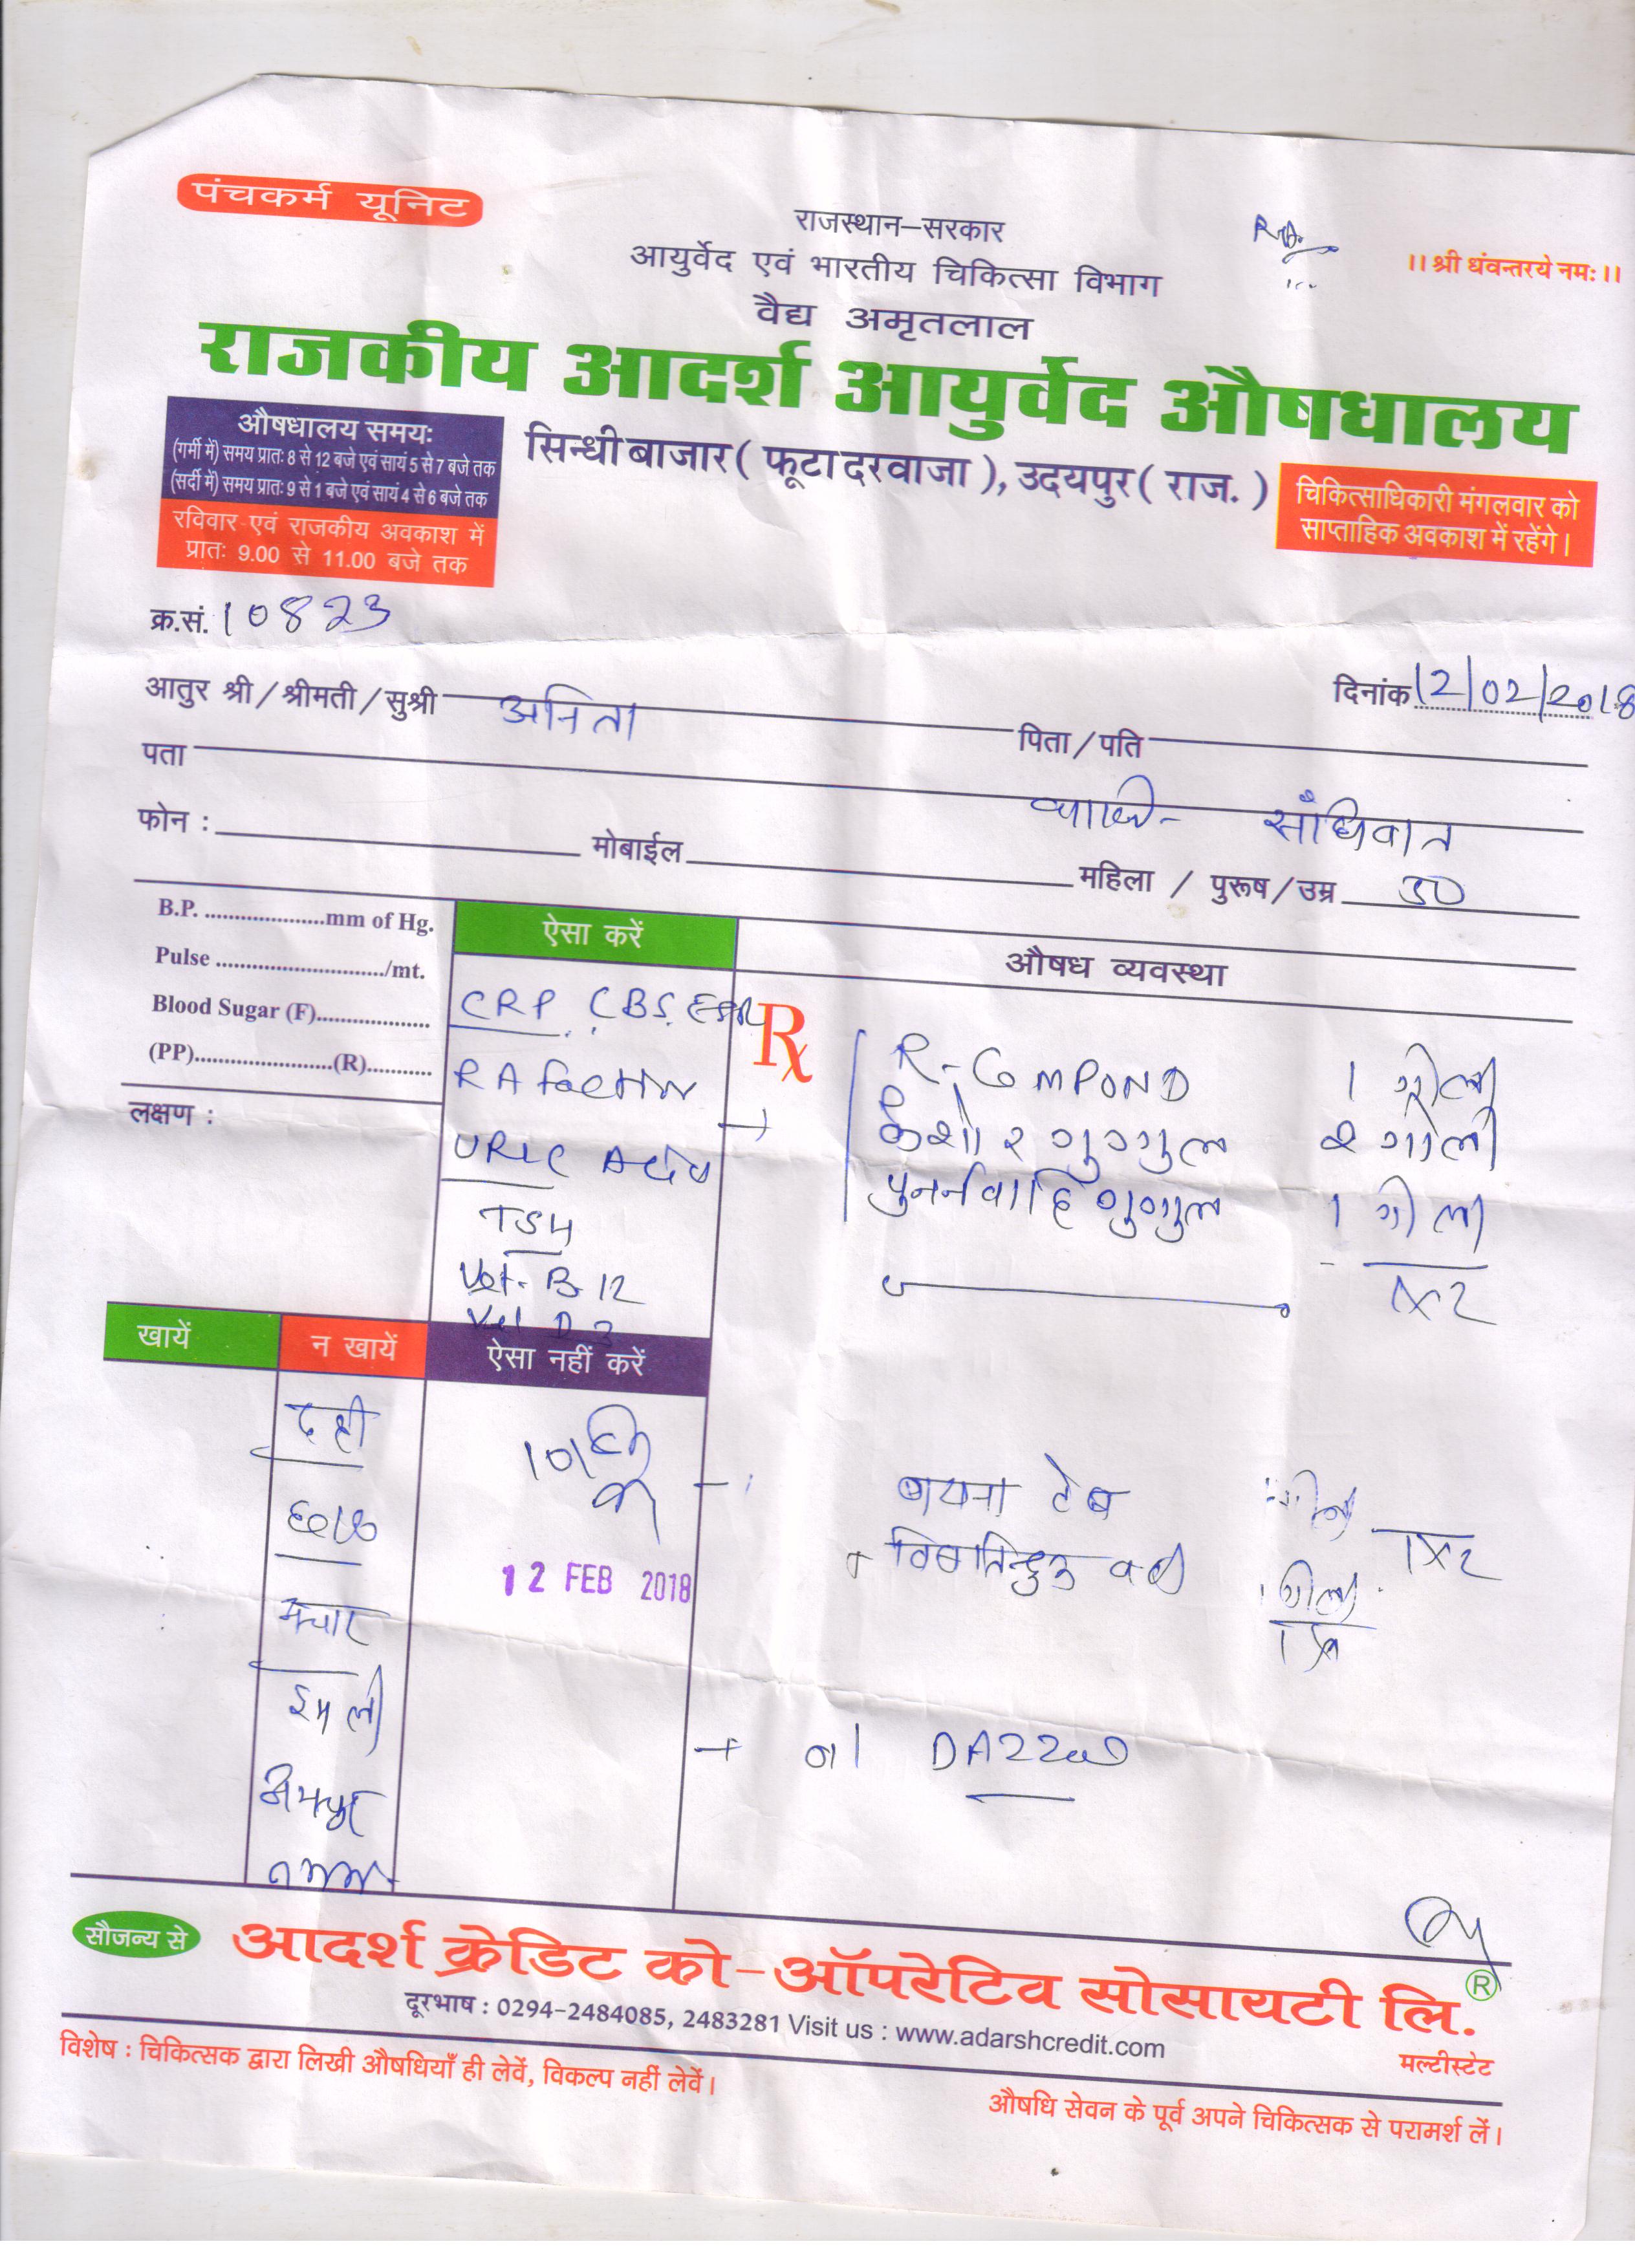 पंचकर्म यूनिट
राजस्थान–सरकार
आयुर्वेद एवं भारतीय चिकित्सा विभाग
।। श्री धंवन्तरये नमः ।।
वैद्य अमृतलाल
राजकीय आदर्श आयुर्वेद औषधालय
औषधालय समयः
(गर्मी में) समय प्रातः 8 से 12 बजे एवं सायं 5 से 7 बजे तक
(सर्दी में) समय प्रातः 9 से 1 बजे एवं सायं 4 से 6 बजे तक
रविवार एवं राजकीय अवकाश में
प्रातः 9.00 से 11.00 बजे तक
सिन्धी बाजार ( फूटा दरवाजा ), उदयपुर ( राज. )
चिकित्साधिकारी मंगलवार को
साप्ताहिक अवकाश में रहेंगे।
क्र.सं. 10823
दिनांक 12/02/2018
आतुर श्री / श्रीमती / सुश्री अनिता पिता / पति
पता
संधिवात
फोन : मोबाईल महिला / पुरूष / उम्र 30
B.P. ....................mm of Hg.
Pulse ............................/mt.
Blood Sugar (F)...................
(PP)......................(R)...........
लक्षण :
ऐसा करें
CRP CBS ESR
RA Factor
URIC Acid
TSH
Vit. B 12
Vit D 3
औषध व्यवस्था
Rx
R-COMPOND 1 गोली
कैशोर गुग्गुल 2 गोली
पुनर्नवादि गुग्गुल 1 गोली
1x2
खायें
न खायें
ऐसा नहीं करें
दही
छाछ
अचार
इमली
अमचूर
12 FEB 2018
टेब
1x2
वटी 1 गोली
सौजन्य से
आदर्श क्रेडिट को–ऑपरेटिव सोसायटी लि. ®
मल्टीस्टेट
दूरभाष : 0294-2484085, 2483281 Visit us : www.adarshcredit.com
विशेष : चिकित्सक द्वारा लिखी औषधियाँ ही लेवें, विकल्प नहीं लेवें।
औषधि सेवन के पूर्व अपने चिकित्सक से परामर्श लें।